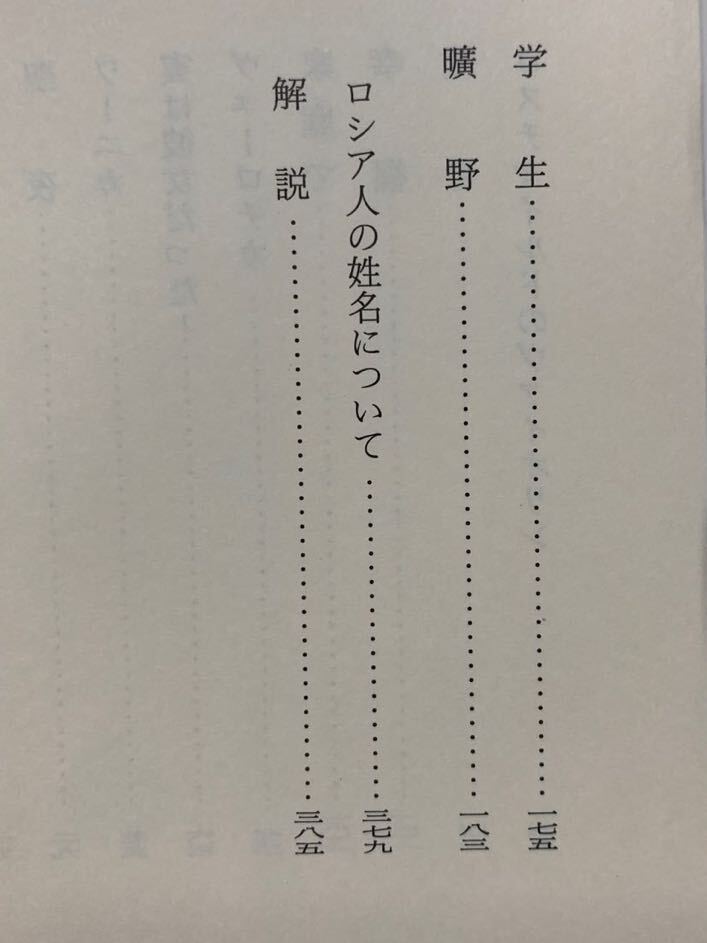 学生……一七五
曠野……一八三
ロシア人の姓名について……三七九
解説……三八五